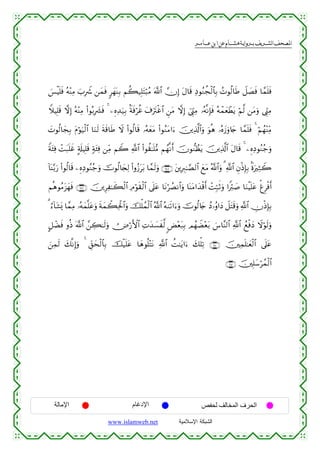 المصحف الشريف برواية هشام عن ابن عامر
فَلَمَّا فَصَلَ طَالُوتُ بِالْجُنُودِ قَالَ إِنَّ اللَّهَ مُبْتَلِيكُم بِنَهَرٍ فَمَن شَرِبَ مِنْهُ فَلَيْسَ
مِنِّي وَمَن لَّمْ يَطْعَمْهُ فَإِنَّهُ مِنِّي إِلَّا مَنِ اغْتَرَفَ غُرْفَةً بِيَدِهِ فَشَرِبُوا مِنْهُ إِلَّا قَلِيلًا
مِّنْهُمْ فَلَمَّا جَاوَزَهُ هُوَ وَالَّذِينَ ءَامَنُوا مَعَهُ قَالُوا لَا طَاقَةَ لَنَا الْيَوْمَ بِجَالُوتَ
وَجُنُودِهِ قَالَ الَّذِينَ يَظُنُّونَ أَنَّهُم مُّلَاقُوا اللَّهِ كَم مِّن فِئَةٍ قَلِيلَةٍ غَلَبَتْ فِئَةً
كَثِيرَةً بِإِذْنِ اللَّهِ وَاللَّهُ مَعَ الصَّابِرِينَ وَلَمَّا بَرَزُوا لِجَالُوتَ وَجُنُودِهِ قَالُوا رَبَّنَا
أَفْرِغْ عَلَيْنَا صَبْرًا وَثَبِّتْ أَقْدَامَنَا وَانصُرْنَا عَلَى الْقَوْمِ الْكَافِرِينَ فَهَزَمُوهُم
بِإِذْنِ اللَّهِ وَقَتَلَ دَاوُودُ جَالُوتَ وَءَاتَاهُ اللَّهُ الْمُلْكَ وَالْحِكْمَةَ وَعَلَّمَهُ مِمَّا يَشَاءُ
وَلَوْلَا دَفْعُ اللَّهِ النَّاسَ بَعْضَهُم بِبَعْضٍ لَّفَسَدَتِ الْأَرْضُ وَلَكِنَّ اللَّهَ ذُو فَضْلٍ
عَلَى الْعَالَمِينَ تِلْكَ ءَايَاتُ اللَّهِ نَتْلُوهَا عَلَيْكَ بِالْحَقِّ وَإِنَّكَ لَمِنَ
الْمُرْسَلِينَ
الحرف المخالف لحفص الإدغام الإمالة
الشبكة الإسلامية www.islamweb.net